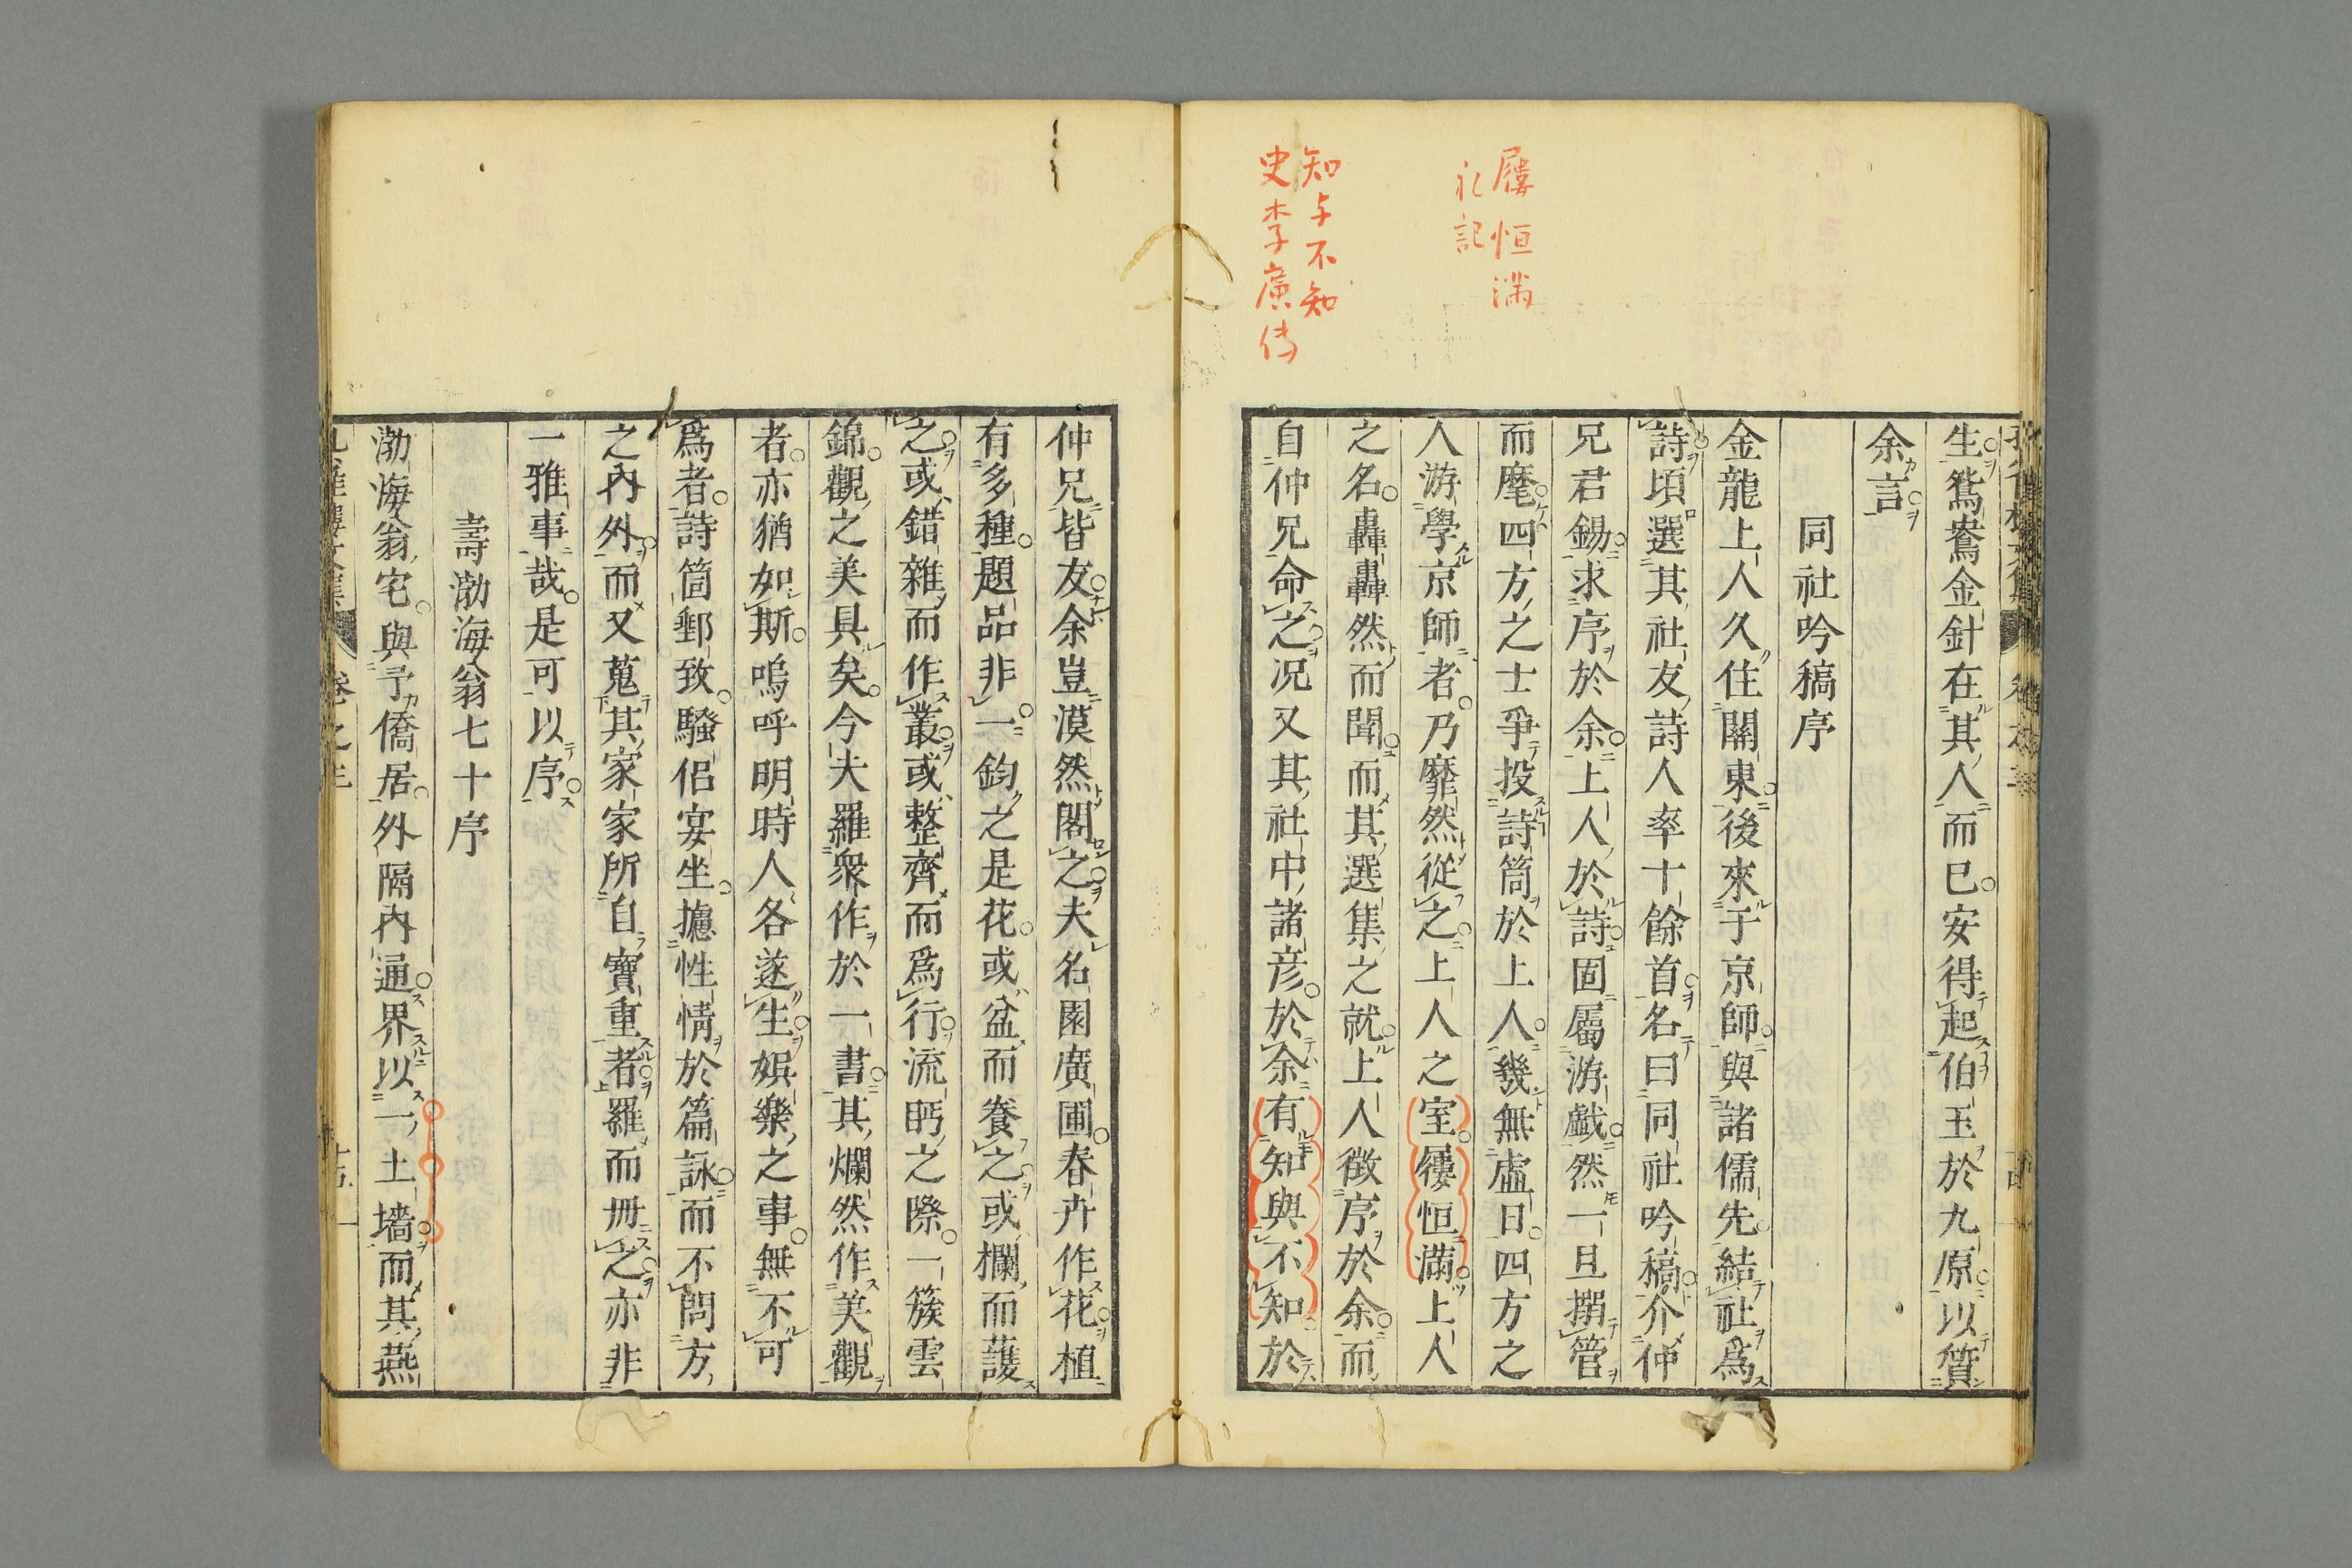 屨恒滿
礼記
知与不知
史李廣傳
生鴛鴦金針在其人而已安得起伯玉於九原以質
余言
同社吟稿序
金龍上人久住關東後來于京師與諸儒先結社爲
詩頃選其社友詩人率十餘首名曰同社吟稿介仲
兄君錫求序於余上人於詩固屬游戲然一旦搦管
而麾四方之士爭投詩筒於上人幾無虛日四方之
人游學京師者乃靡然從之上人之室屨恒滿上人
之名轟轟然而聞而其選集之就上人徵序於余而
自仲兄命之况又其社中諸彦於余有知與不知於
仲兄皆友余豈漠然閣之夫名園廣圃春卉作花植
有多種題品非一鈞之是花或盆而養之或欄而護
之或錯雜而作叢或整齊而爲行流眄之際一簇雲
錦觀之美具矣今夫羅衆作於一書其爛然作美觀
者亦猶如斯嗚呼明時人各遂生娯樂之事無不可
爲者詩筒郵致騷侶宴坐攄性情於篇詠而不問方
之內外而又蒐其家家所自寶重者羅而冊之亦非
一雅事哉是可以序
壽渤海翁七十序
渤海翁宅與予僑居外隔內通界以一土墻而其燕
卷之三